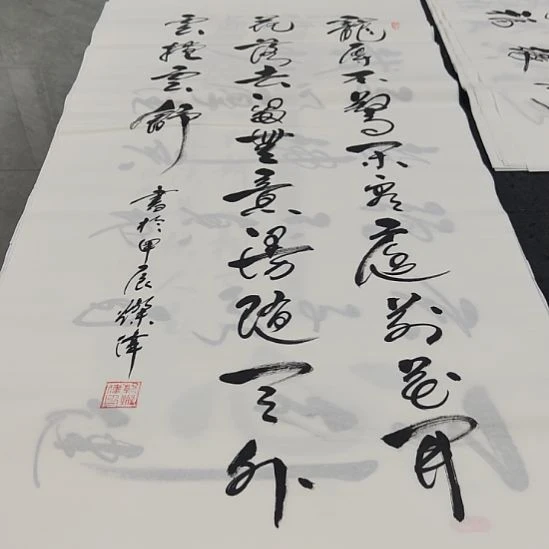 寵辱不驚閑看庭前花開
花落去留無意漫隨天外
雲捲雲舒
書於甲辰燦